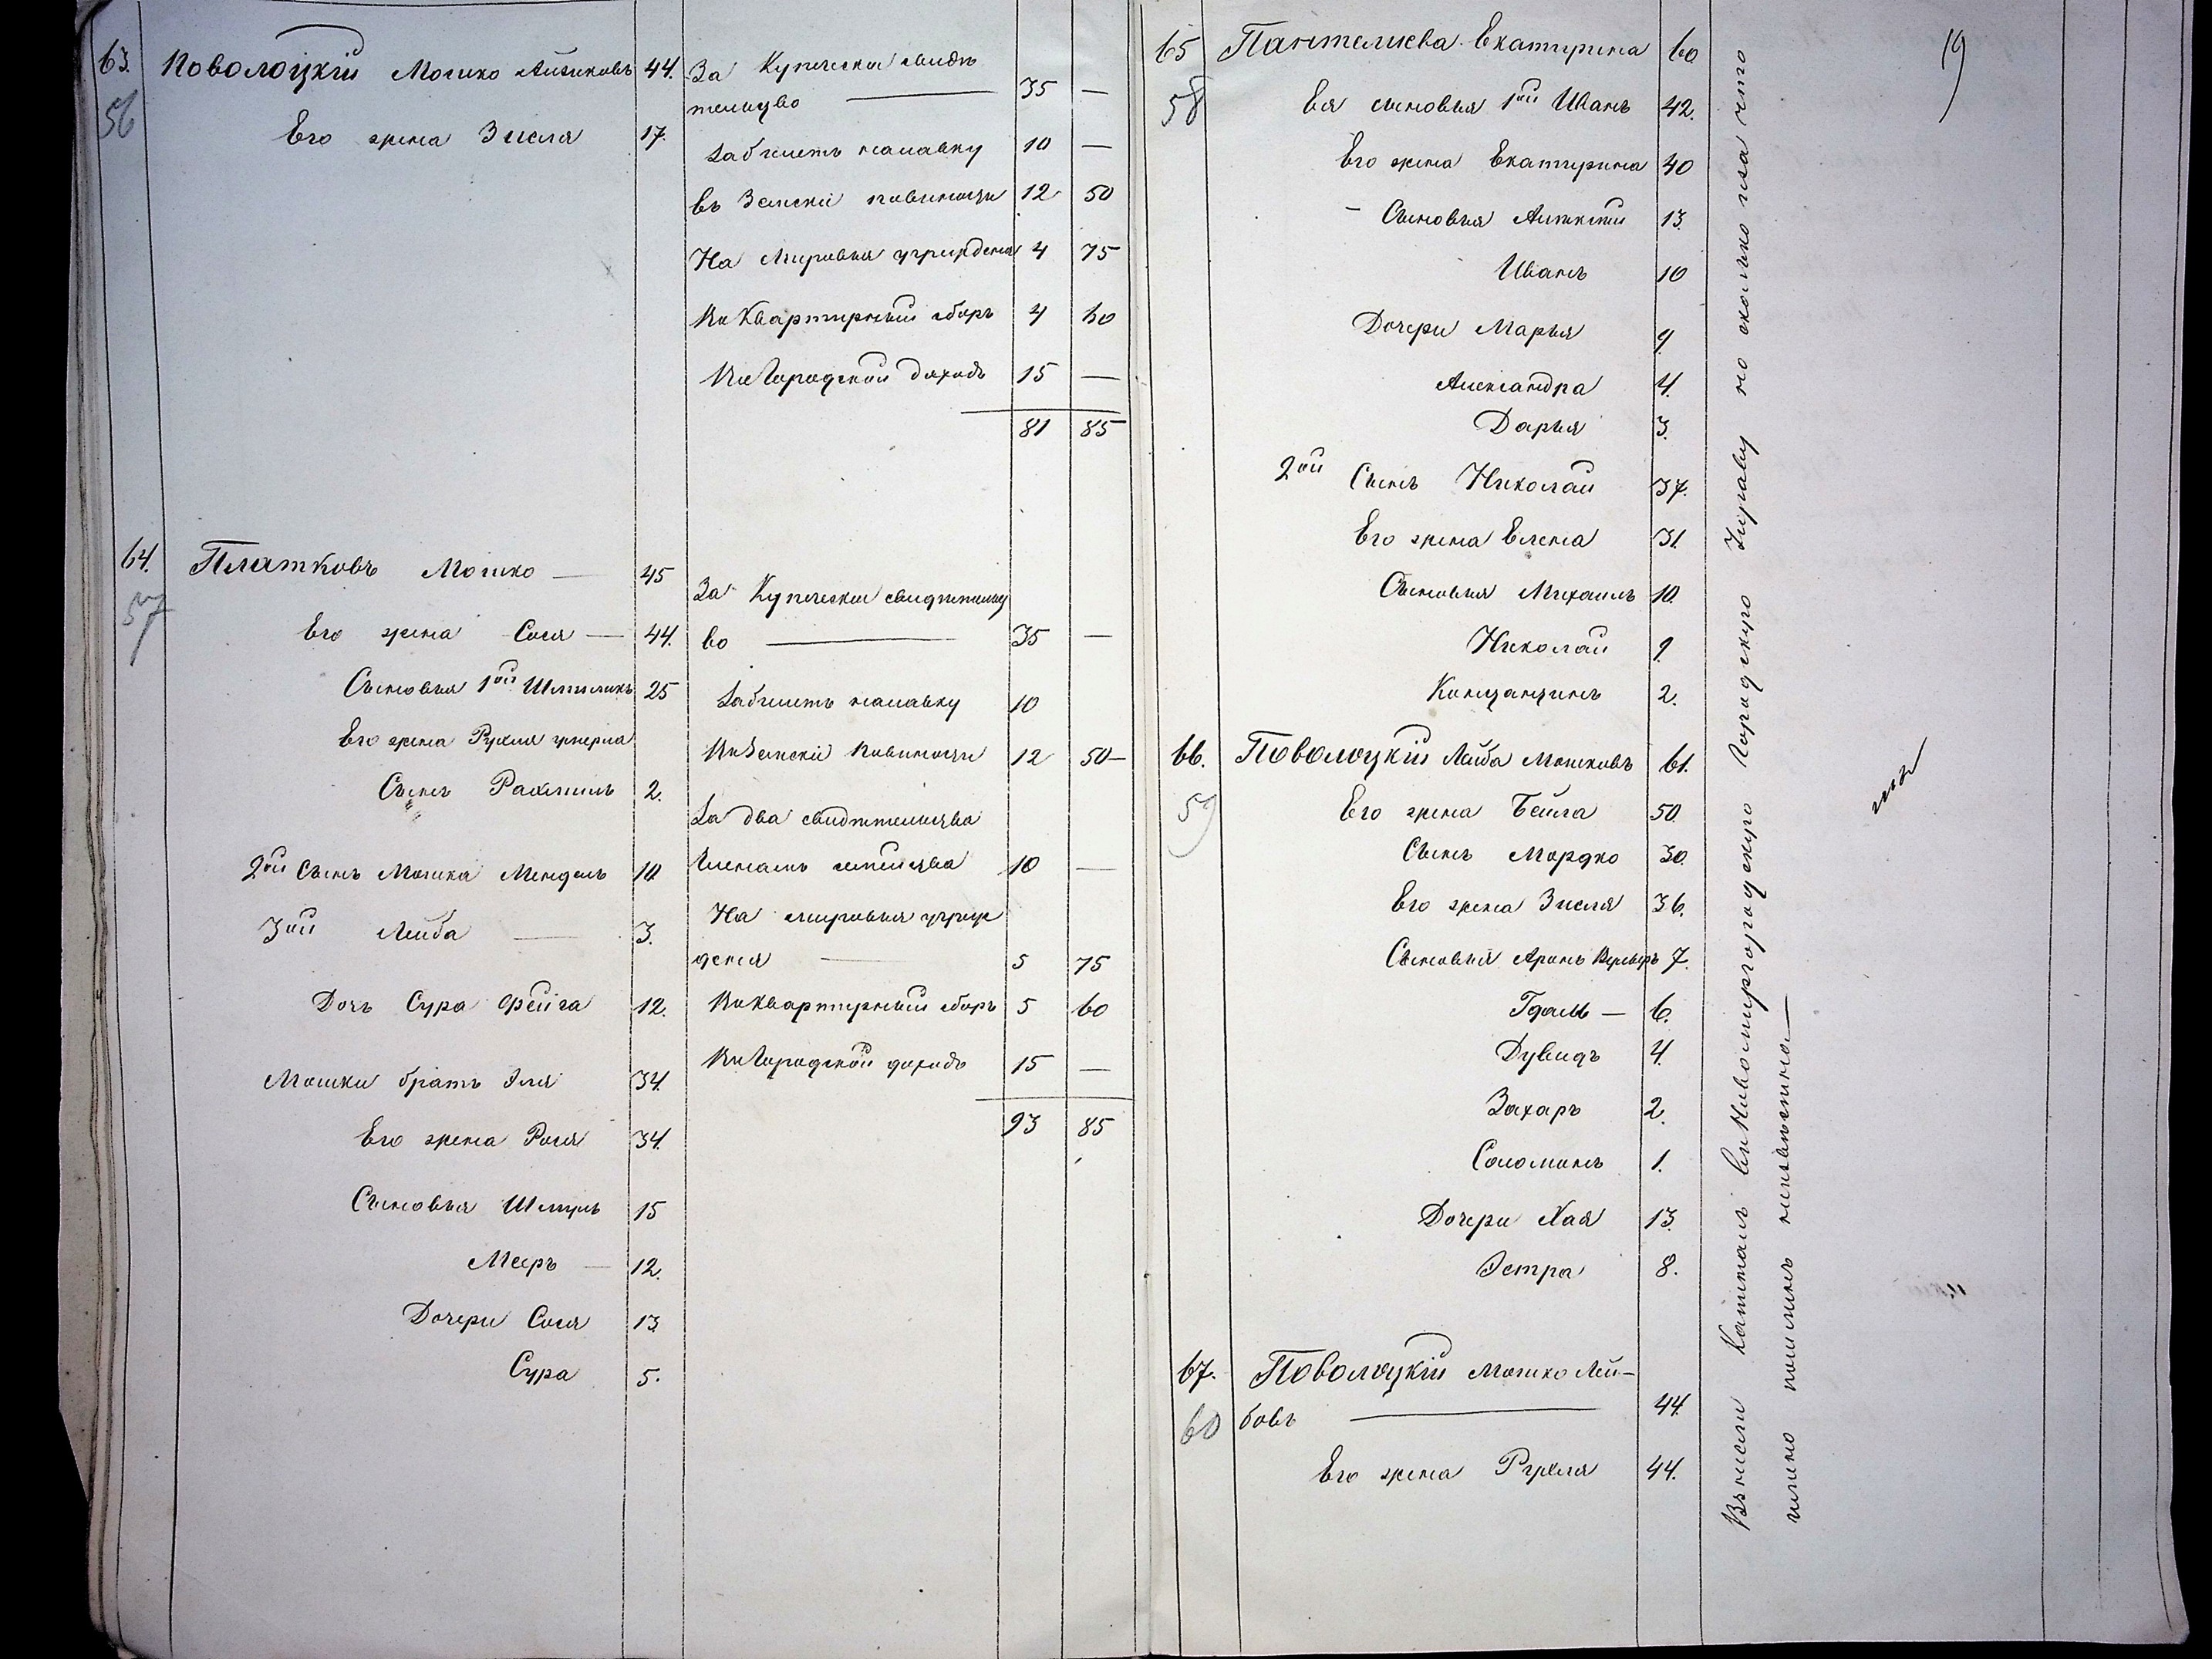 63. Поволоцкій Мошко Айзиковъ 44. За Купеческое свидѣ
тельство — 35 —
56
Его жена Зисля 17.
За билетъ на лавку 10 —
въ Земскіе повинности 12 50
На Мировыя учрежденія 4 75
На Квартирный сборъ 4 60
На Городской доходъ 15 —
81 85
64. Платковъ Мошко — 45
57
За Купеческое свидѣтельст
во — 35 —
Его жена Сося — 44.
Сыновья 1ой Шмиликъ 25
За билетъ на лавку 10
Его жена Рухля умерла
На Земскіе Повинности 12 50 —
Сынъ Рахмиль 2.
За два свидѣтельства
2ой Сынъ Мошка Мендель 10
Членамъ семейства 10 —
3ой Лейба — 3.
На мировыя учреж
денія — 5 75
Дочь Сура Фейга 12.
На Квартирный сборъ 5 60
Мошки братъ Эля 34.
На Городской доходъ 15 —
93 85
Его жена Рося 34.
Сыновья Шмуль 15
Мееръ — 12.
Дочери Сося 13.
Сура 5.
19
65 Пантелиева Екатерина 60
58
Ея сыновья 1ой Иванъ 42.
Его жена Екатерина 40
– Сыновья Алексей 13.
Иванъ 10
Дочери Марья 9.
Александра 4.
Дарья 3.
2ой Сынъ Николай 37.
Его жена Елена 31.
Сыновья Михаилъ 10.
Николай 9.
Константинъ 2.
66. Поволоцкій Лейба Мошковъ 61.
59
Его жена Бейла 50.
Сынъ Мордко 30.
Его жена Зисля 36.
Сыновья Аронъ Верьверъ 7.
Гдаль — 6.
Дувидъ 4.
Захаръ 2.
Соломонъ 1.
Дочери Хая 13.
Эстра 8.
67. Поволоцкій Мошко Лей-
бовъ — 44.
60
Его жена Рухля 44.
Внесли Капиталъ въ Новомиргородскую Городскую Управу но сколько иза что
пошлинъ неизвѣстно —